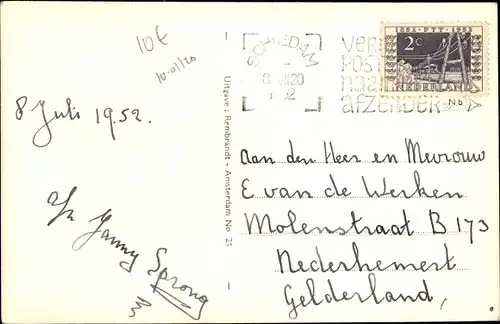 10€
10-01/20
8 Juli 1952.
Jansy Sprong
SCHIEDAM
8.VII20
POST
naar
afzender
1852-PTT-1952
2c
NEDERLAND
Nb
Uitgave: Rembrandt - Amsterdam No 21
aan den Heer en Mevrouw
E van de Werken
Molenstraat B 173
Nederhemert
Gelderland,